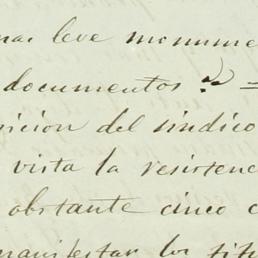 mas leve monume
documentos? =
sicion del sindico
vista la resisten
obstante cinco c
manifestar los tit